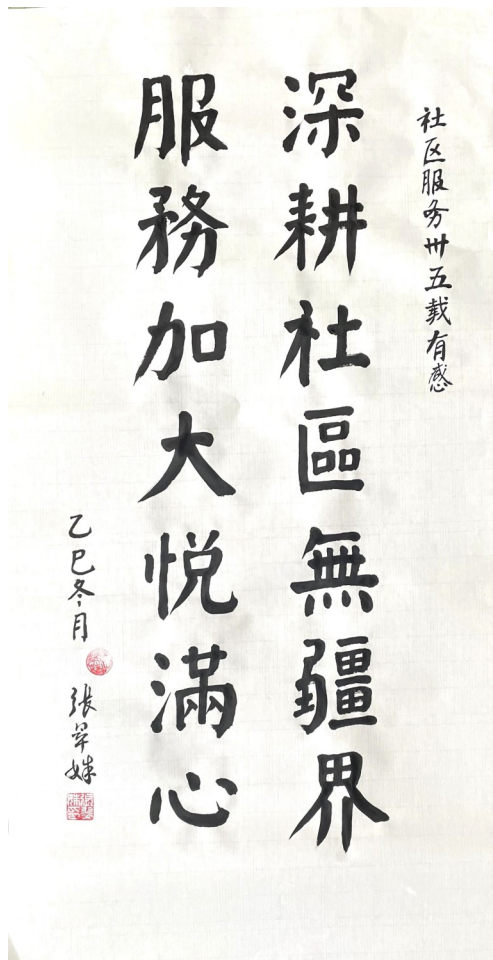 社区服务卅五载有感
深耕社區無疆界
服務加大悦滿心
乙巳冬月
張翠姝